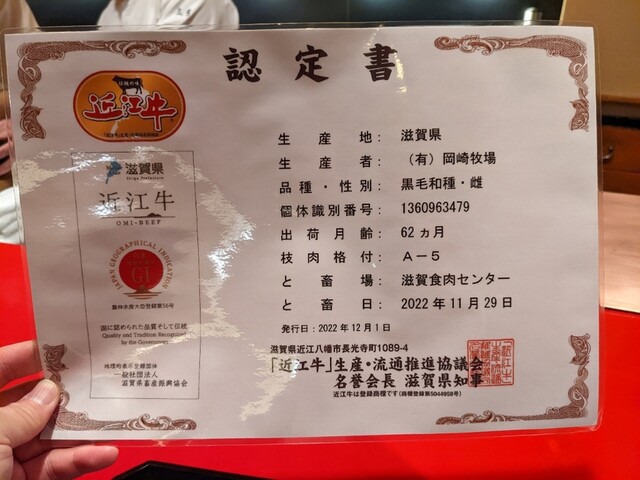 認定書
伝統の味
近江牛
滋賀県
Shiga Prefecture
近江牛
OMI-BEEF
JAPAN GEOGRAPHICAL INDICATION
GI
農林水産大臣登録第56号
国に認められた品質そして伝統
Quality and Tradition Recognized
by the Government
地理的表示登録団体
一般社団法人
滋賀県畜産振興協会
生産地: 滋賀県
生産者: (有)岡崎牧場
品種・性別: 黒毛和種・雌
個体識別番号: 1360963479
出荷月齢: 62ヵ月
枝肉格付: A-5
と畜場: 滋賀食肉センター
と畜日: 2022年11月29日
発行日:2022年12月1日
滋賀県近江八幡市長光寺町1089-4
「近江牛」生産・流通推進協議会
名誉会長 滋賀県知事
近江牛は登録商標です(商標登録第5044958号)